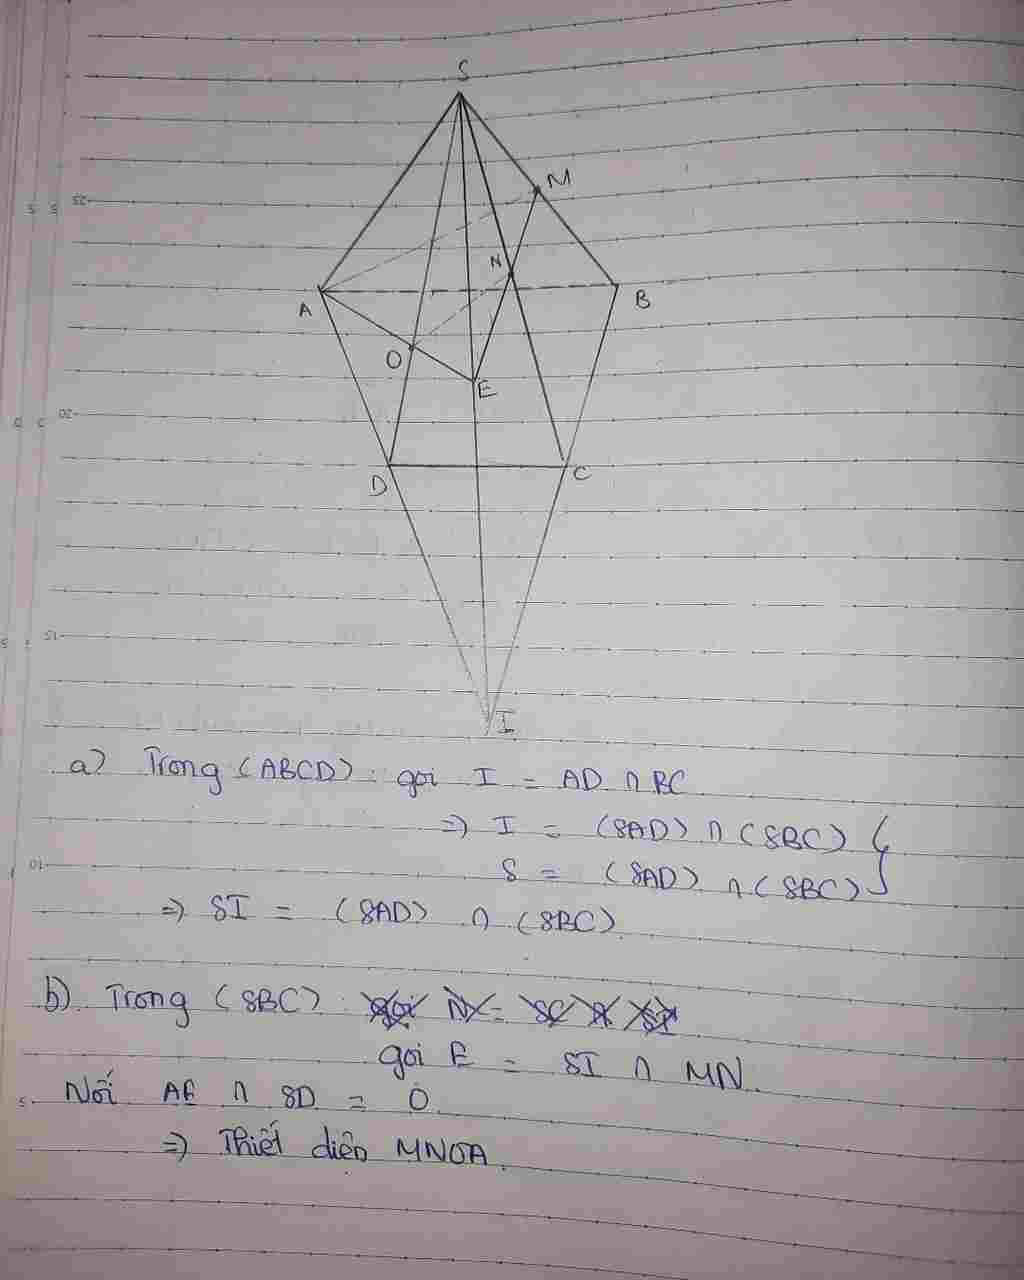 S
M
N
A
B
O
E
D
C
I
a) Trong (ABCD) : gọi I = AD ∩ BC
=> I = (SAD) ∩ (SBC)
S = (SAD) ∩ (SBC) }
=> SI = (SAD) ∩ (SBC).
b) Trong (SBC) :
gọi E = SI ∩ MN.
Nối AE ∩ SD = O
=> Thiết diện MNOA.